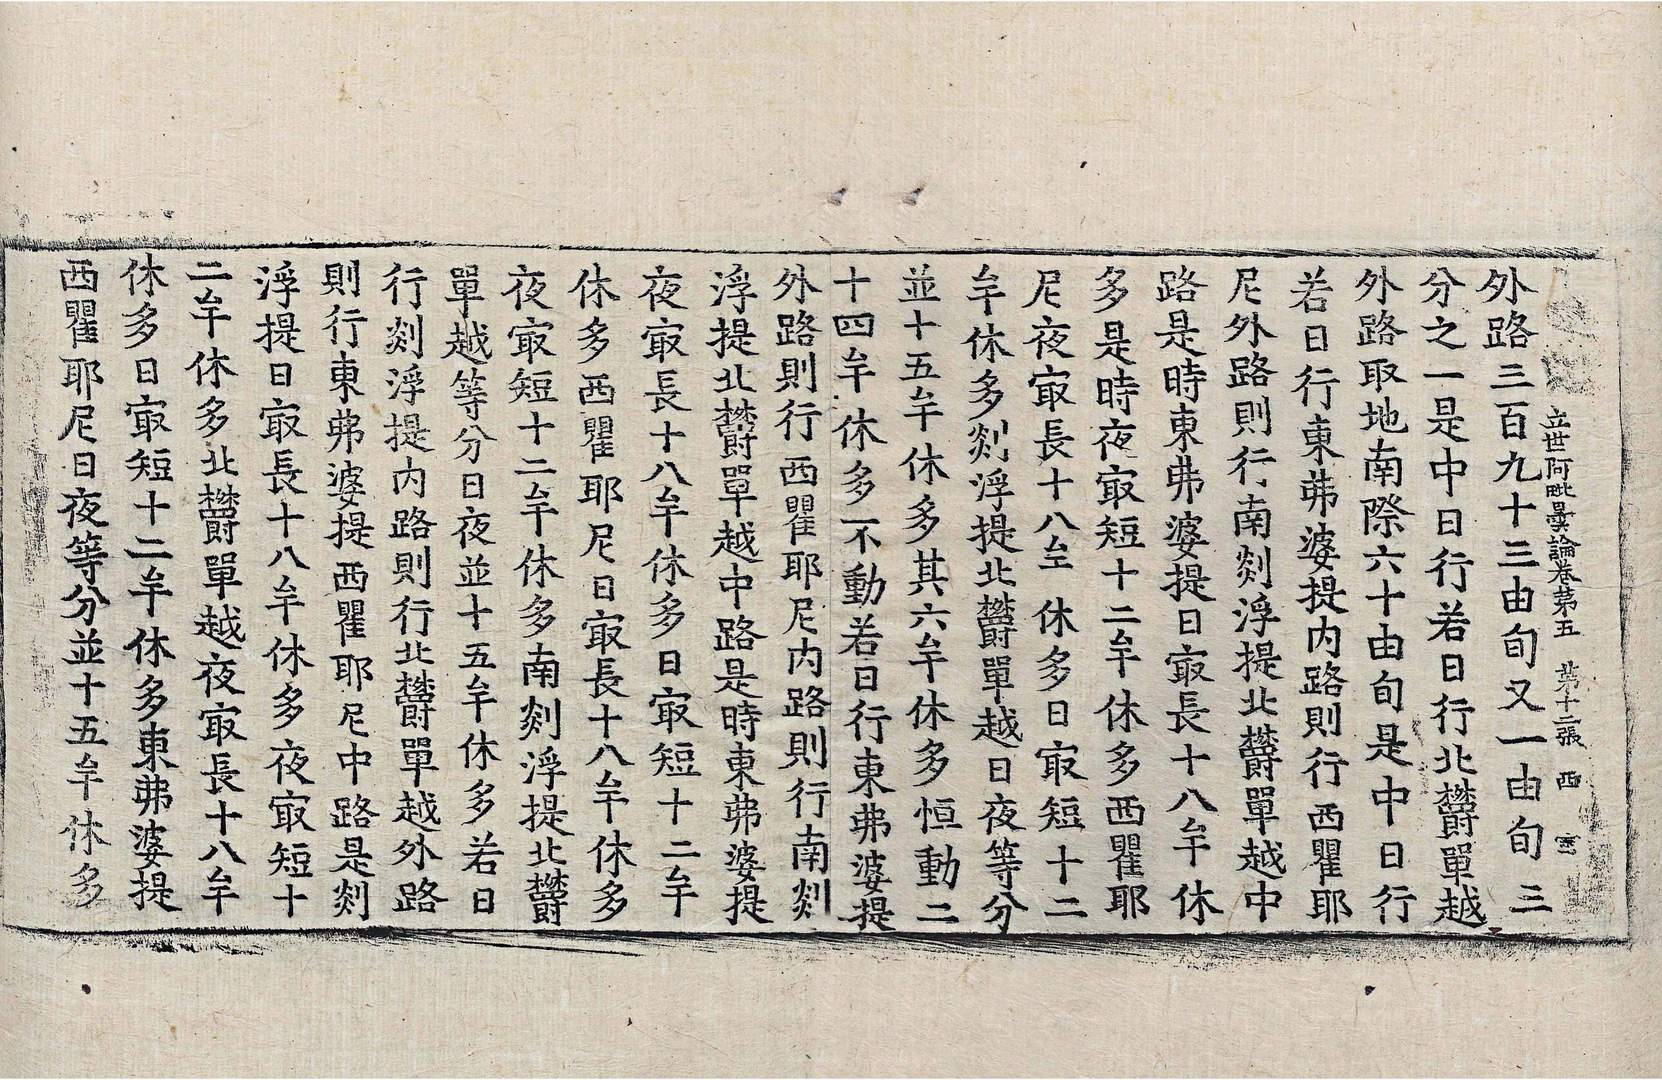 立世阿毗曇論卷第五 第十二張 西
外路三百九十三由旬又一由旬三
分之一是中日行若日行北欝單越
外路取地南際六十由旬是中日行
若日行東弗婆提内路則行西瞿耶
尼外路則行南剡浮提北欝單越中
路是時東弗婆提日㝡長十八牟休
多是時夜㝡短十二牟休多西瞿耶
尼夜㝡長十八牟休多日㝡短十二
牟休多剡浮提北欝單越日夜等分
並十五牟休多其六牟休多恒動二
十四牟休多不動若日行東弗婆提
外路則行西瞿耶尼内路則行南剡
浮提北欝單越中路是時東弗婆提
夜㝡長十八牟休多日㝡短十二牟
休多西瞿耶尼日㝡長十八牟休多
夜㝡短十二牟休多南剡浮提北欝
單越等分日夜並十五牟休多若日
行剡浮提内路則行北欝單越外路
則行東弗婆提西瞿耶尼中路是剡
浮提日㝡長十八牟休多夜㝡短十
二牟休多北欝單越夜㝡長十八牟
休多日㝡短十二牟休多東弗婆提
西瞿耶尼日夜等分並十五牟休多